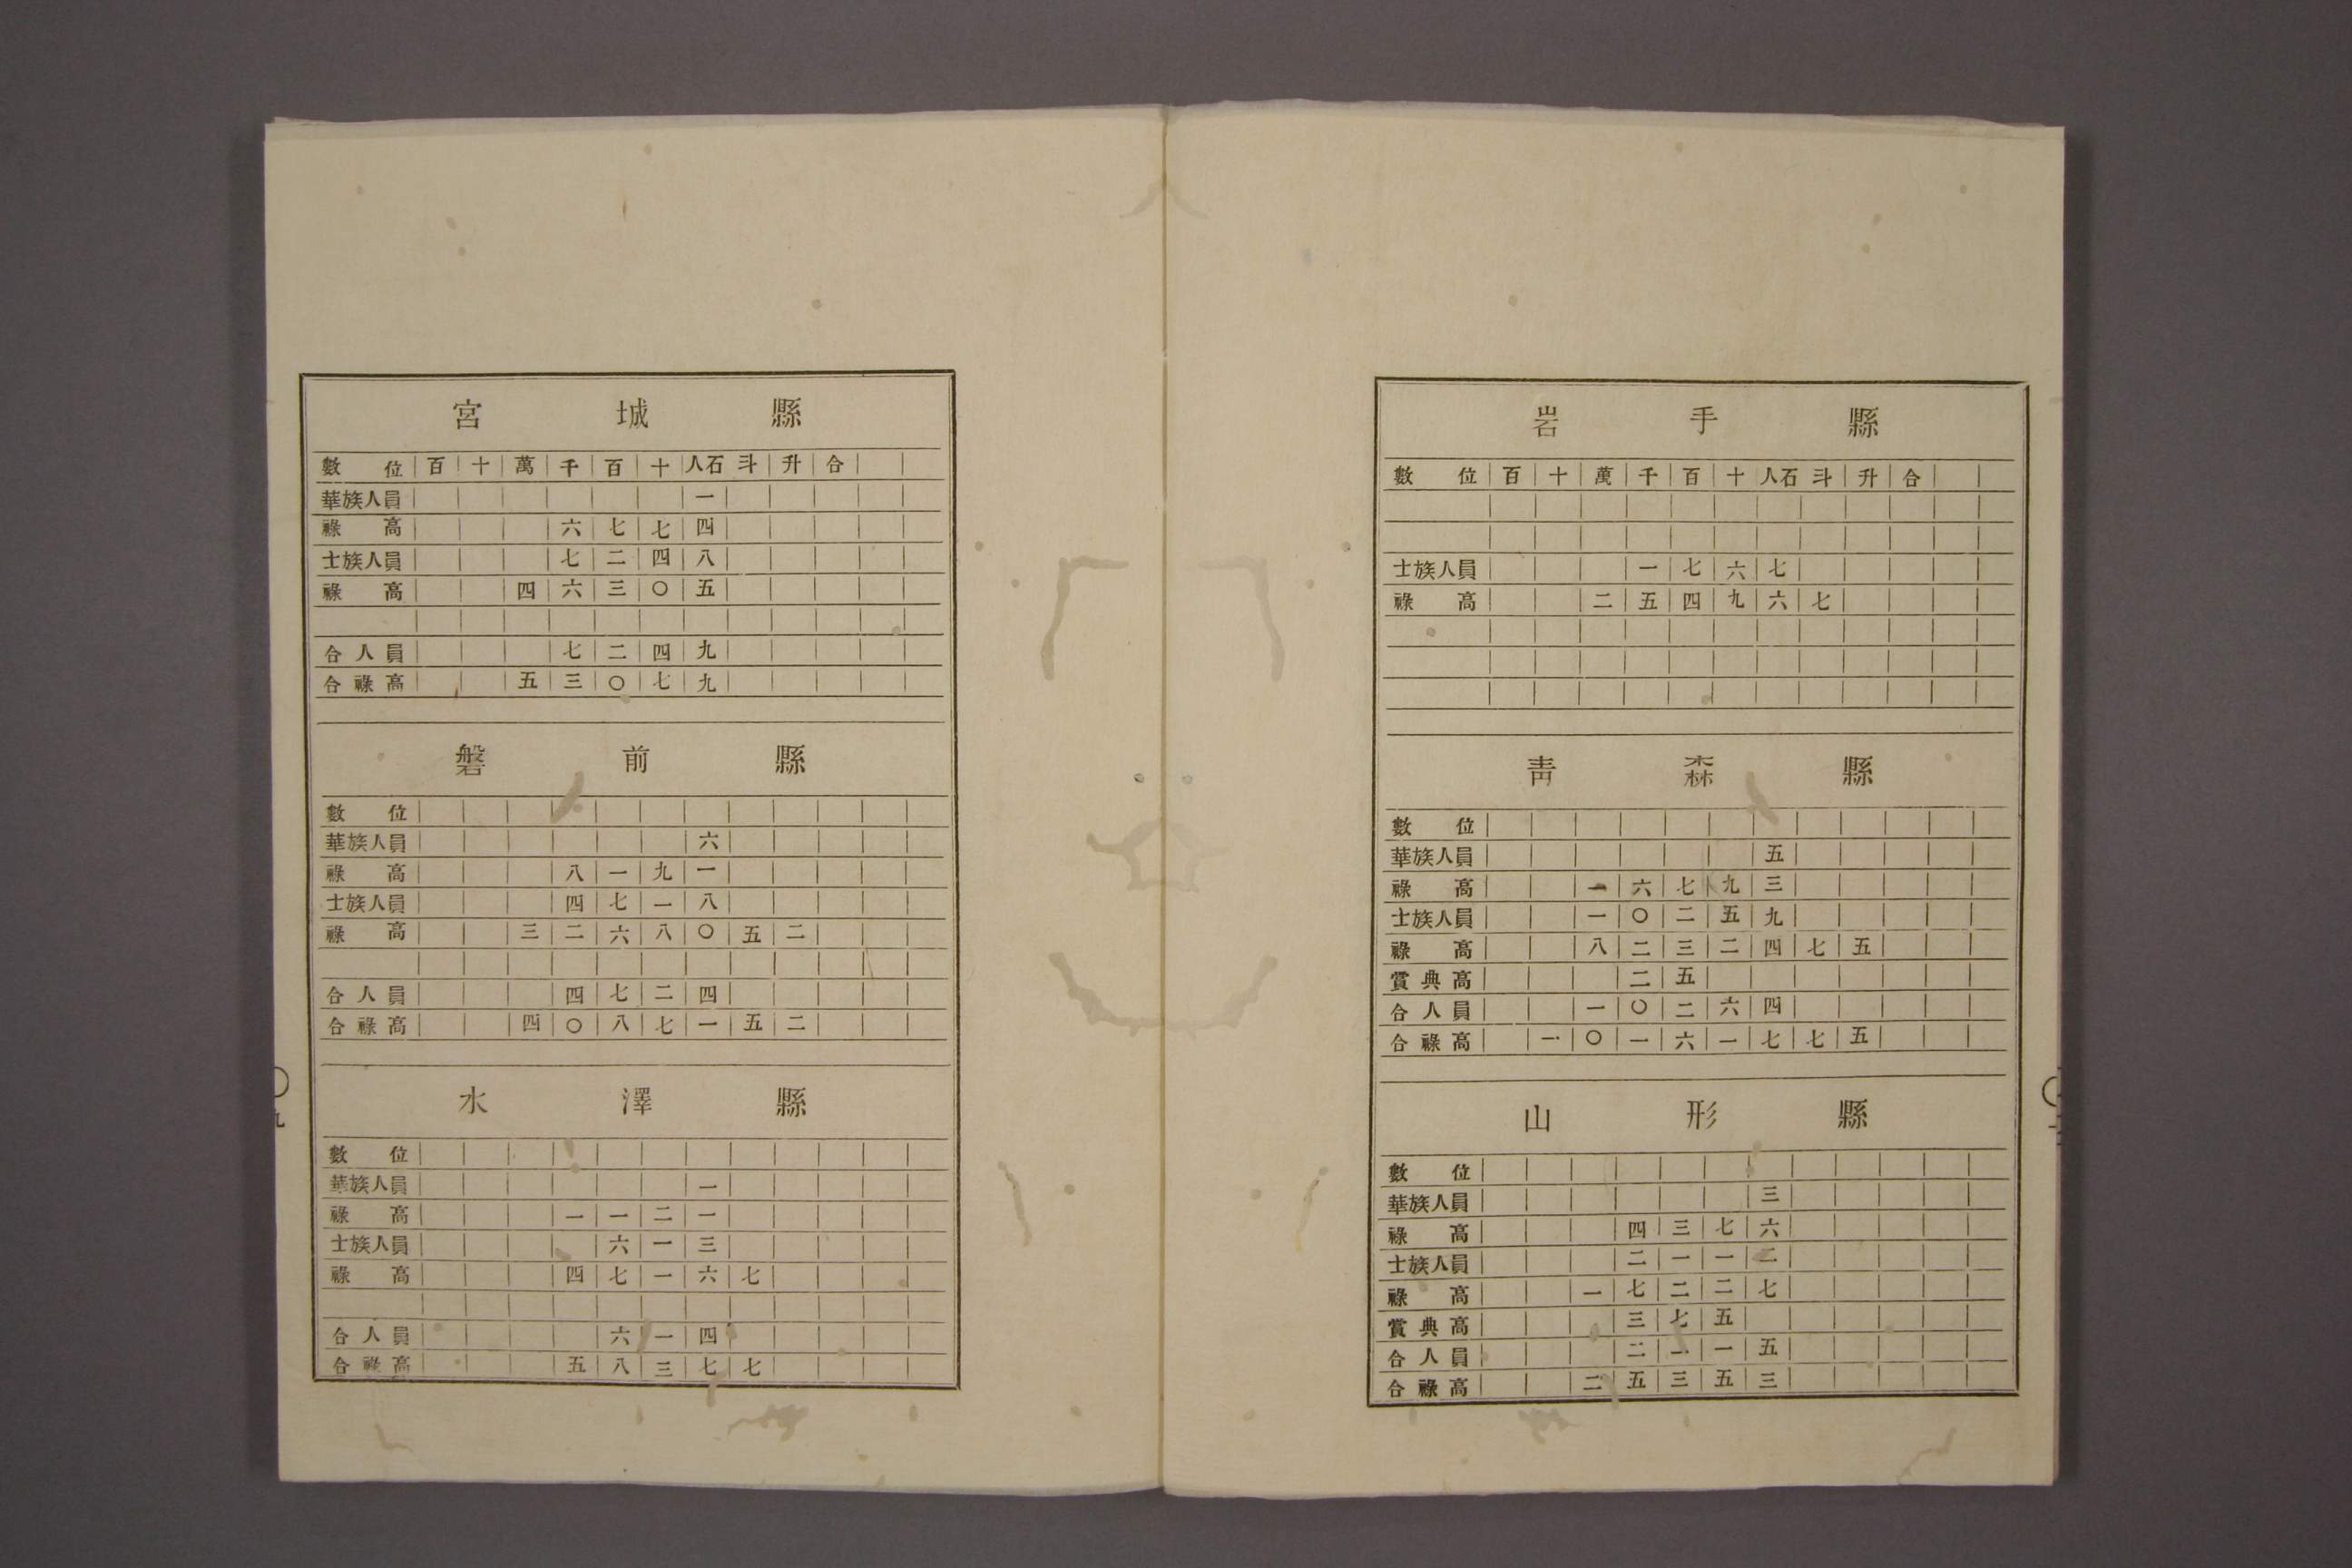 宮城縣
數位 百 十 萬 千 百 十 人石 斗 升 合
華族人員 一
祿高 六 七 七 四
士族人員 七 二 四 八
祿高 四 六 三 〇 五
合人員 七 二 四 九
合祿高 五 三 〇 七 九
磐前縣
數位
華族人員 六
祿高 八 一 九 一
士族人員 四 七 一 八
祿高 三 二 六 八 〇 五 二
合人員 四 七 二 四
合祿高 四 〇 八 七 一 五 二
水澤縣
數位
華族人員 一
祿高 一 一 二 一
士族人員 六 一 三
祿高 四 七 一 六 七
合人員 六 一 四
合祿高 五 八 三 七 七
〇九
岩手縣
數位 百 十 萬 千 百 十 人石 斗 升 合
士族人員 一 七 六 七
祿高 二 五 四 九 六 七
靑森縣
數位
華族人員 五
祿高 一 六 七 九 三
士族人員 一 〇 二 五 九
祿高 八 二 三 二 四 七 五
賞典高 二 五
合人員 一 〇 二 六 四
合祿高 一 〇 一 六 一 七 七 五
山形縣
數位
華族人員 三
祿高 四 三 七 六
士族人員 二 一 一 二
祿高 一 七 二 二 七
賞典高 三 七 五
合人員 二 一 一 五
合祿高 二 五 三 五 三